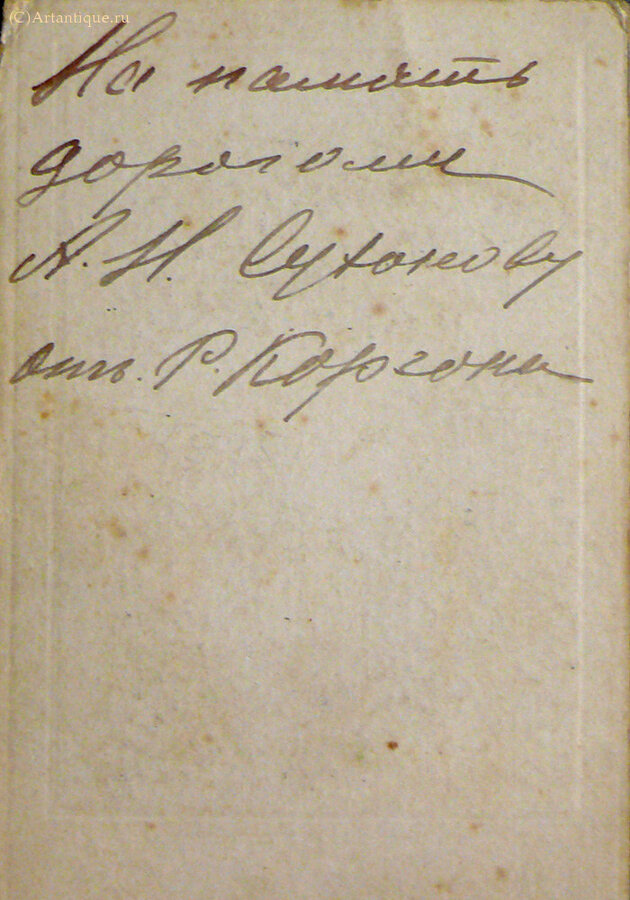 (C)Artantique.ru
На память
дорогому
А. Н. Суханову
отъ. Р. Корсона